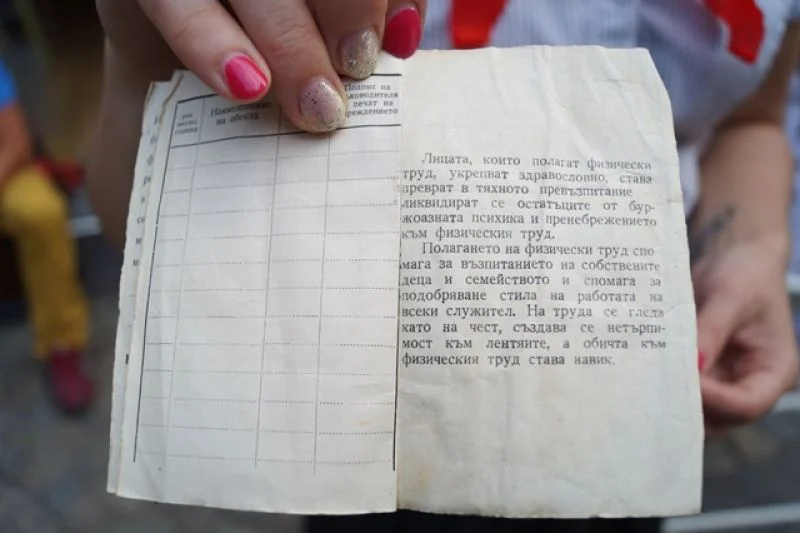 ден
месец
година
Наименование
на обекта
Подпис на
ководителя
печат на
реждението
Лицата, които полагат физически
труд, укрепват здравословно, става
преврат в тяхното превъзпитание
ликвидират се остатъците от бур-
жоазната психика и пренебрежението
към физическия труд.
Полагането на физически труд спо-
мага за възпитанието на собствените
деца и семейството и спомага за
подобряване стила на работата на
всеки служител. На труда се гледа
като на чест, създава се нетърпи-
мост към лентяите, а обичта към
физическия труд става навик.